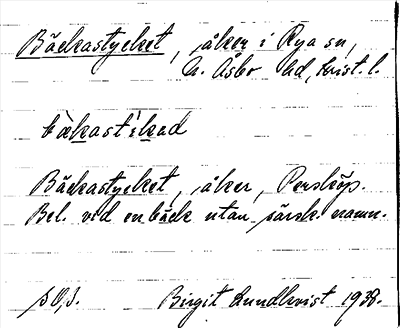 Bäckastycket, åker i Rya sn,
N. Åsbo hd, Krist. l.
bækast ekad
Bäckastycket, åker, Persköp.
Bel. vid en bäck utan särsk. namn.
Birgit Lundkvist 1938.